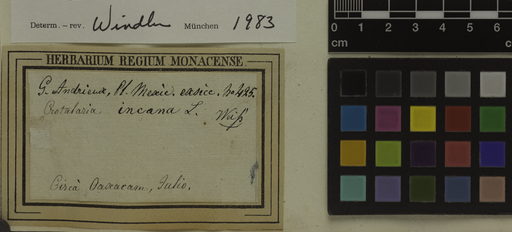 Determ. – rev. Windler München 1983
HERBARIUM REGIUM MONACENSE
G. Andrieux, Pl. Mexic. exsicc. No 425.
Crotalaria incana L.
Circa Oaxacam, Julio.
0 1 2 3 4
cm